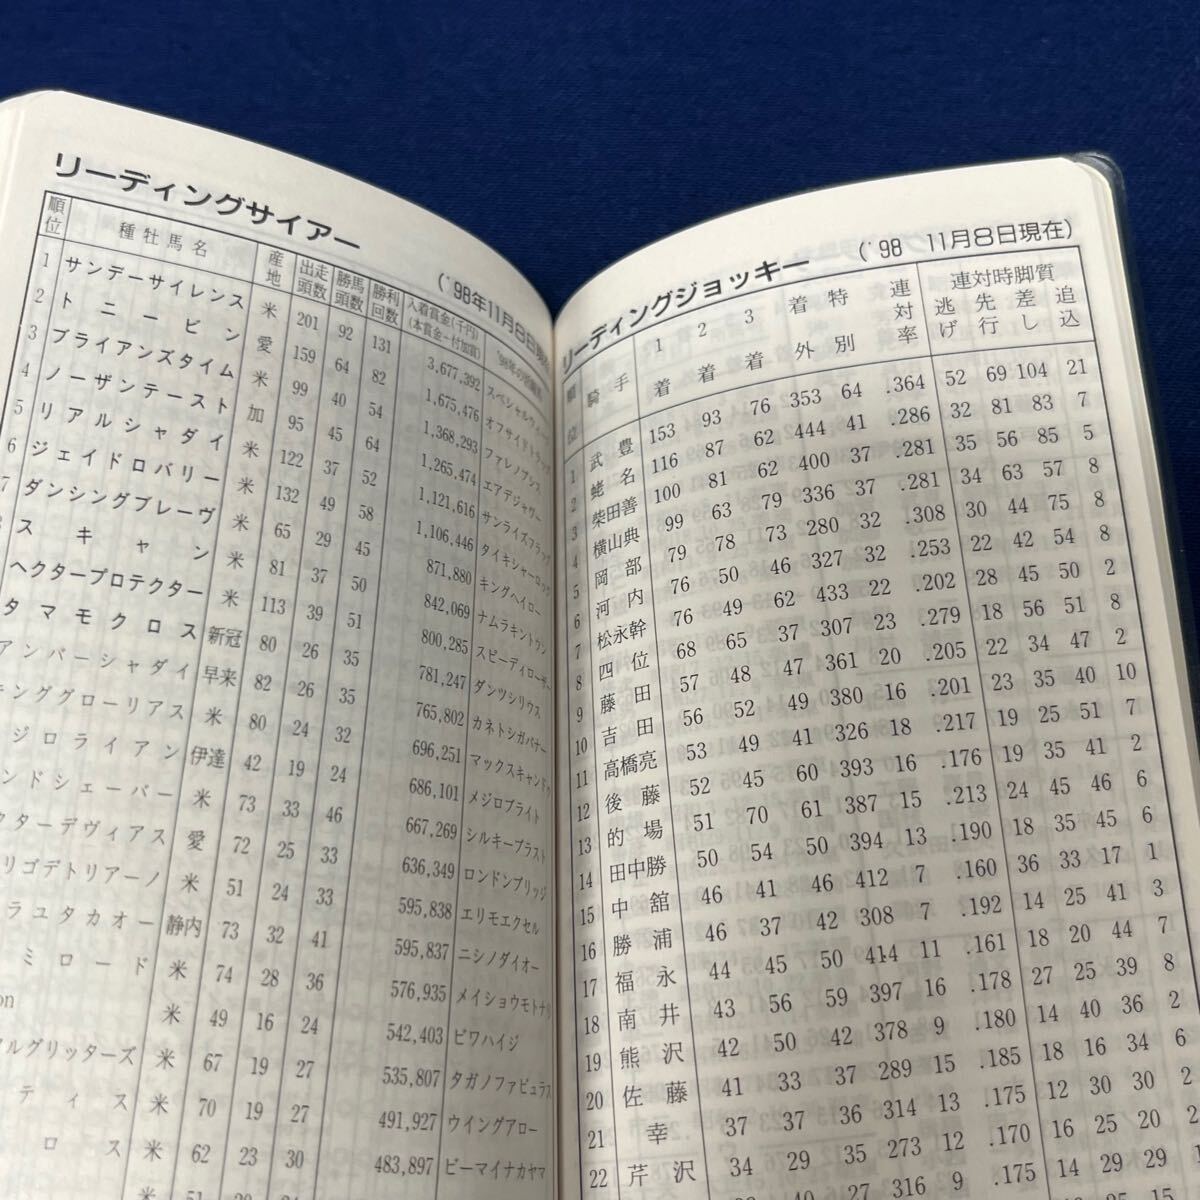 リーディングサイアー
('98年11月8日現
順位 種牡馬名 産地 出走頭数 勝馬頭数 勝利回数 入着賞金(千円)(本賞金-付加賞)
1 サンデーサイレンス 米 201 92 131 3,677,392 スペシャルウィーク
2 トニービン 愛 159 64 82 1,675,476 オフサイドトラップ
3 ブライアンズタイム 米 99 40 54 1,368,293 ファレノプシス
4 ノーザンテースト 加 95 45 64 1,265,474 エアデジャヴー
5 リアルシャダイ 米 122 37 52 1,121,616 サンライズフラッグ
6 ジェイドロバリー 米 132 49 58 1,106,446 タイキシャーロック
7 ダンシングブレーヴ 米 65 29 45 871,880 キングヘイロー
スキャン 米 81 37 50 842,069 ナムラキントウン
ヘクタープロテクター 米 113 39 51 800,285 スピーディローザー
タマモクロス 新冠 80 26 35 781,247 ダンツシリウス
アンバーシャダイ 早来 82 26 35 765,802 カネトシガバナー
ティンググローリアス 米 80 24 32 696,251 マックスキャンドゥ
ジロライアン 伊達 42 19 24 686,101 メジロブライト
ンドシェーバー 米 73 33 46 667,269 シルキーブラスト
クターデヴィアス 愛 72 25 33 636,349 ロンドンブリッジ
リゴデトリアーノ 米 51 24 33 595,838 エリモエクセル
ラユタカオー 静内 73 32 41 595,837 ニシノダイオー
ミロード 米 74 28 36 576,935 メイショウモトナリ
on 米 49 16 24 542,403 ビワハイジ
ルグリッターズ 米 67 19 27 535,807 タガノファビュラス
ティス 米 70 19 27 491,927 ウイングアロー
ロス 米 62 23 30 483,897 ビーマイナカヤマ
米 51
リーディングジョッキー
('98 11月8日現在)
順位 騎手 1着 2着 3着 着外 特別 連対率 連対時脚質 逃げ 先行 差し 追込
1 武豊 153 93 76 353 64 .364 52 69 104 21
2 蛯名 116 87 62 444 41 .286 32 81 83 7
3 柴田善 100 81 62 400 37 .281 35 56 85 5
4 横山典 99 63 79 336 37 .281 34 63 57 8
5 岡部 79 78 73 280 32 .308 30 44 75 8
6 河内 76 50 46 327 32 .253 22 42 54 8
7 松永幹 76 49 62 433 22 .202 28 45 50 2
8 四位 68 65 37 307 23 .279 18 56 51 8
9 藤田 57 48 47 361 20 .205 22 34 47 2
10 吉田 56 52 49 380 16 .201 23 35 40 10
11 高橋亮 53 49 41 326 18 .217 19 25 51 7
12 後藤 52 45 60 393 16 .176 19 35 41 2
13 的場 51 70 61 387 15 .213 24 45 46 6
14 田中勝 50 54 50 394 13 .190 18 35 45 6
15 中舘 46 41 46 412 7 .160 36 33 17 1
16 勝浦 46 37 42 308 7 .192 14 25 41 3
17 福永 44 45 50 414 11 .161 18 20 44 7
18 南井 43 56 59 397 16 .178 27 25 39 8
19 熊沢 42 50 42 378 9 .180 14 40 36 2
20 佐藤 41 33 37 289 15 .185 18 16 34 6
21 幸 37 37 36 314 13 .175 12 30 30 2
22 芹沢 34 29 35 273 12 .170 16 25 20 2
291 9 .175 14 29